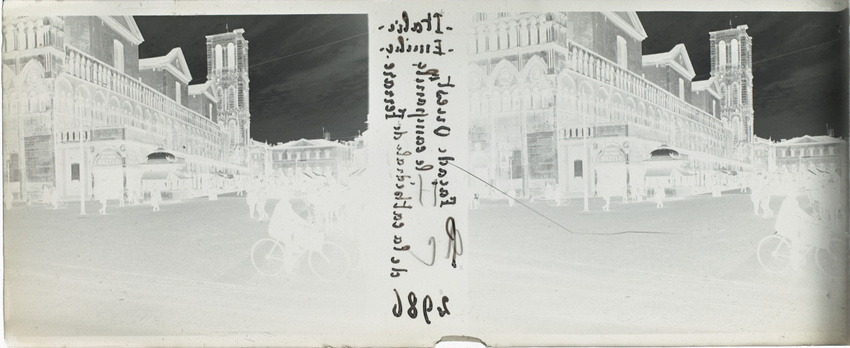 - Italie.
- Emilie.
Façade Ouest
et campanile
de la cathédrale de Ferrare.
2986